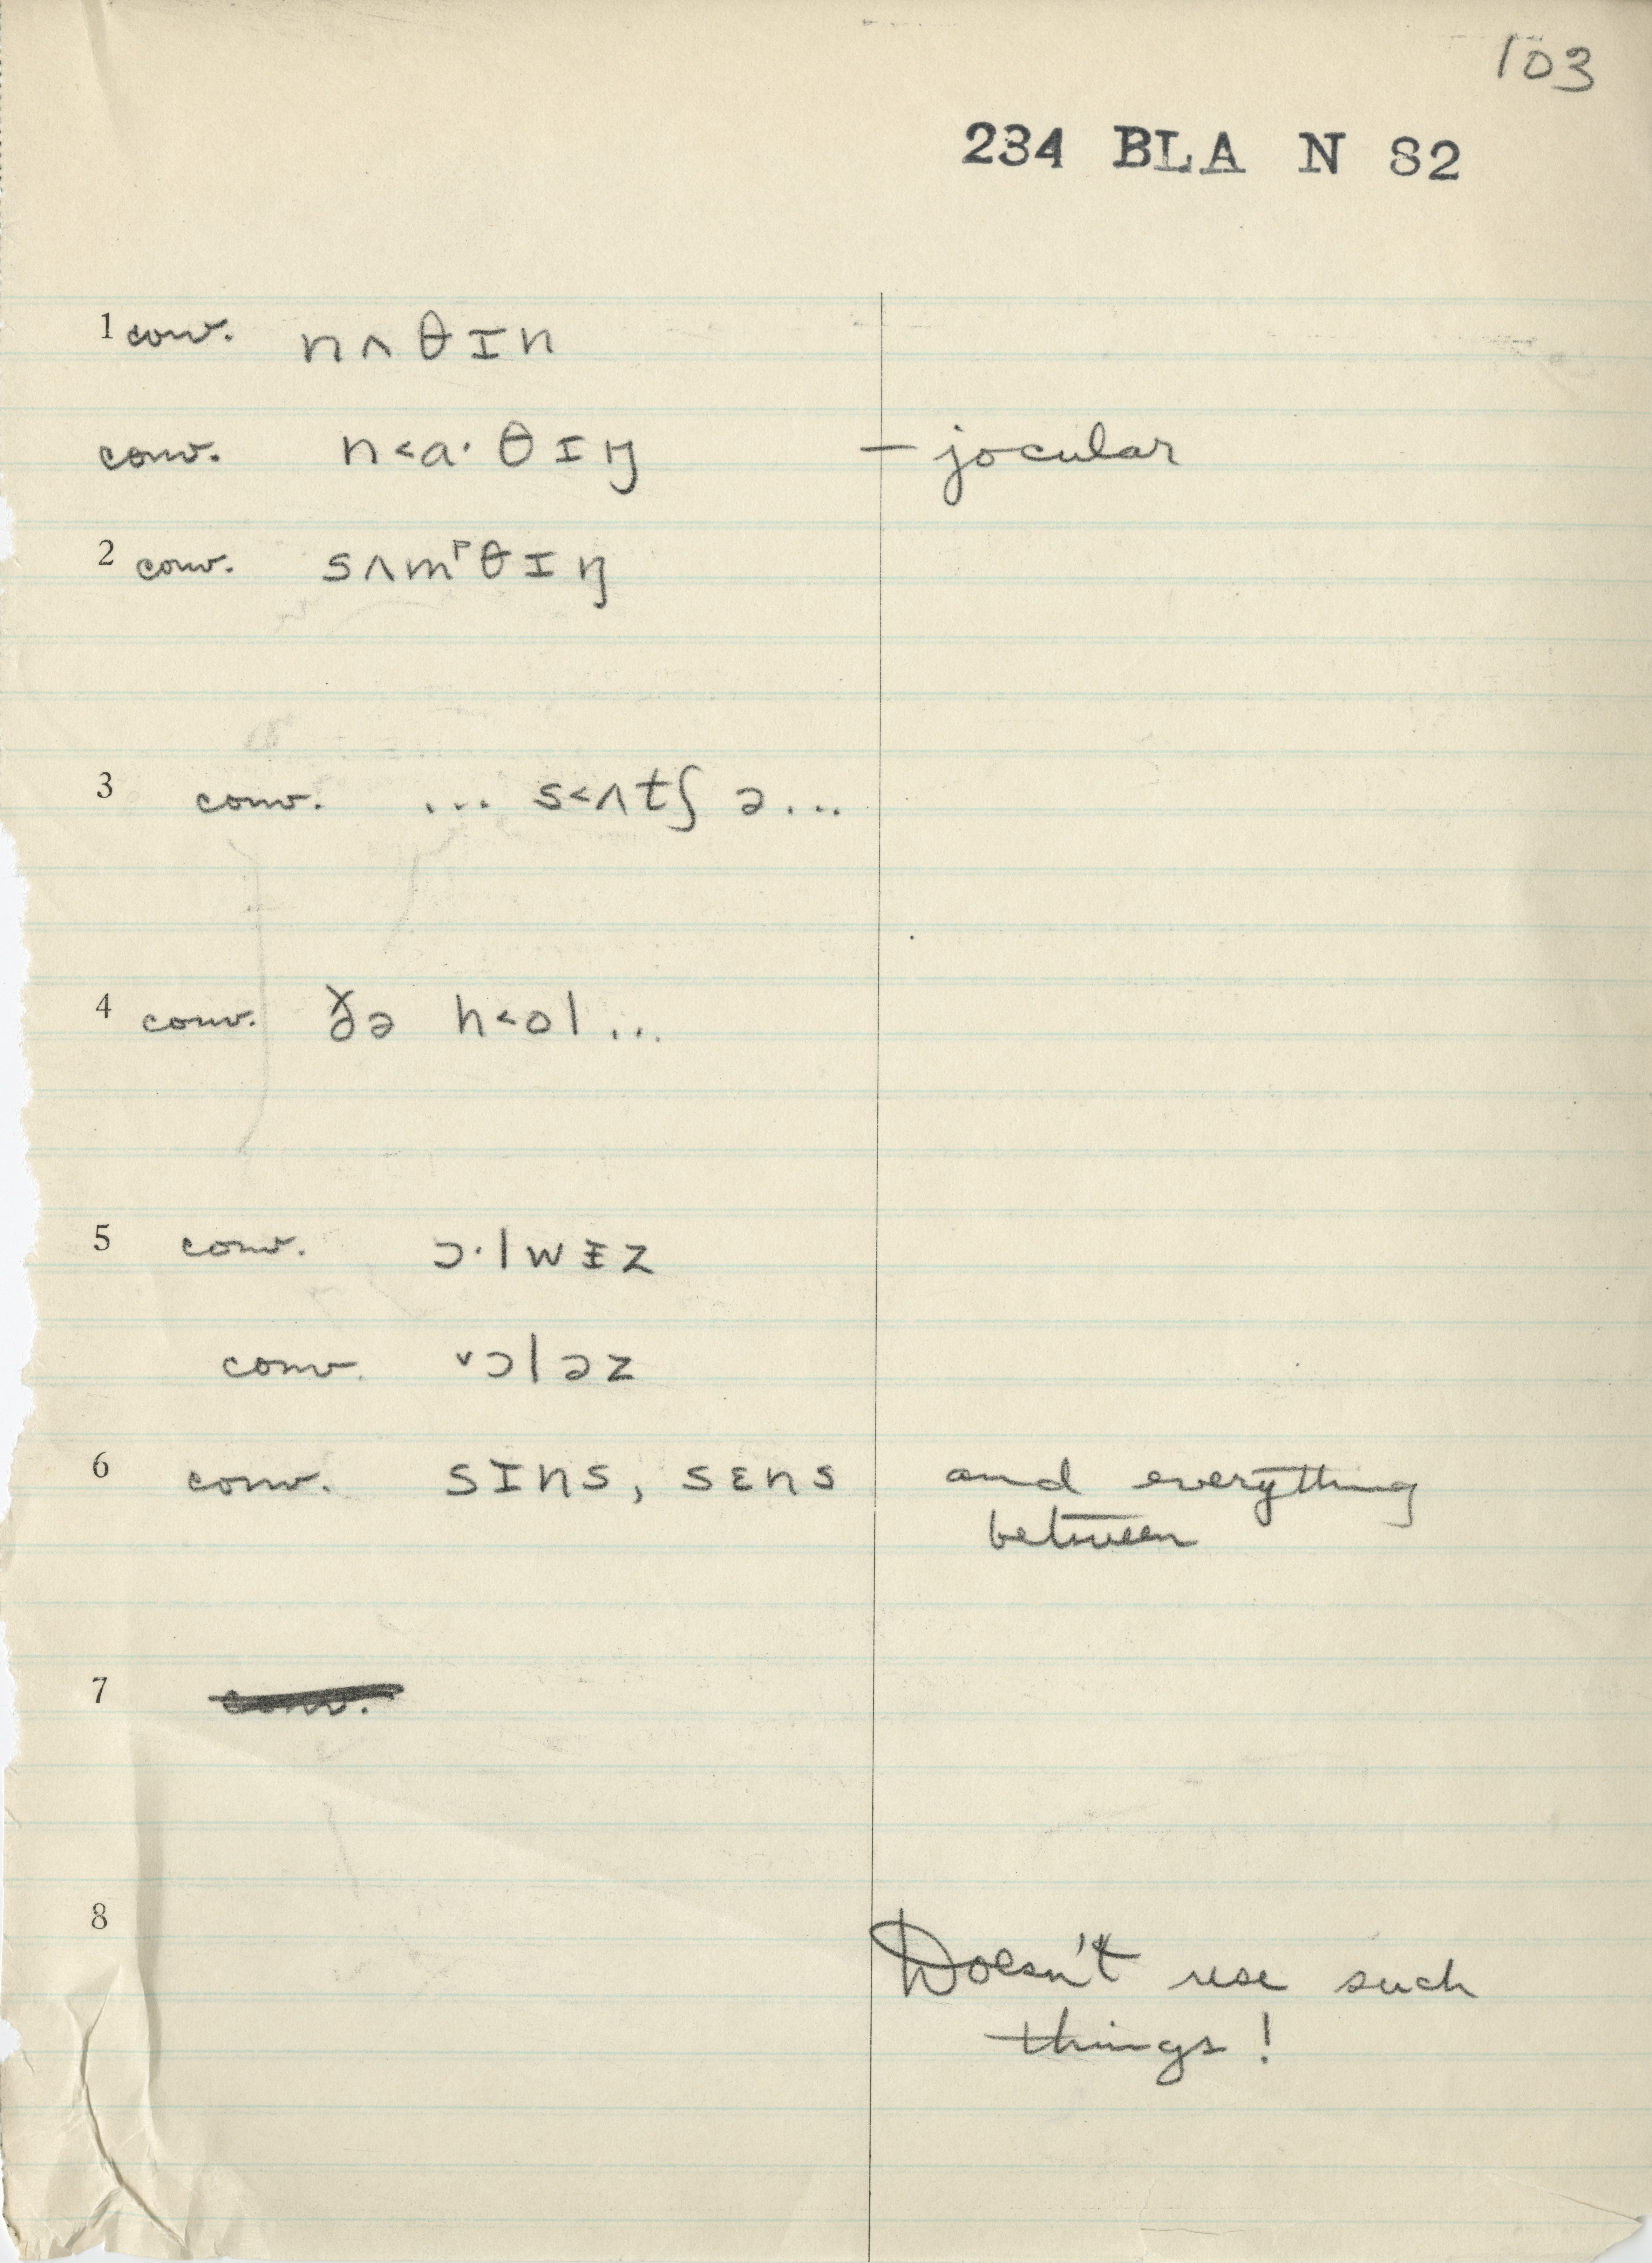 103
234 BLA N 82
1 conv. nʌθɪn
conv. n<a· θɪŋ – jocular
2 conv. sʌmᵖθɪŋ
3 conv. ... s<ʌtʃ ə...
4 conv. ðə h<ol...
5 conv. ɔ·lwɪ̵z
conv. ˅ɔləz
6 conv. sɪns, sɛns and everything
between
7 conv.
8
Doesn't use such
things!